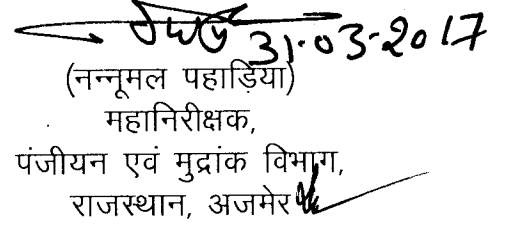 31-03-2017
(नन्नूमल पहाड़िया)
महानिरीक्षक,
पंजीयन एवं मुद्रांक विभाग,
राजस्थान, अजमेर